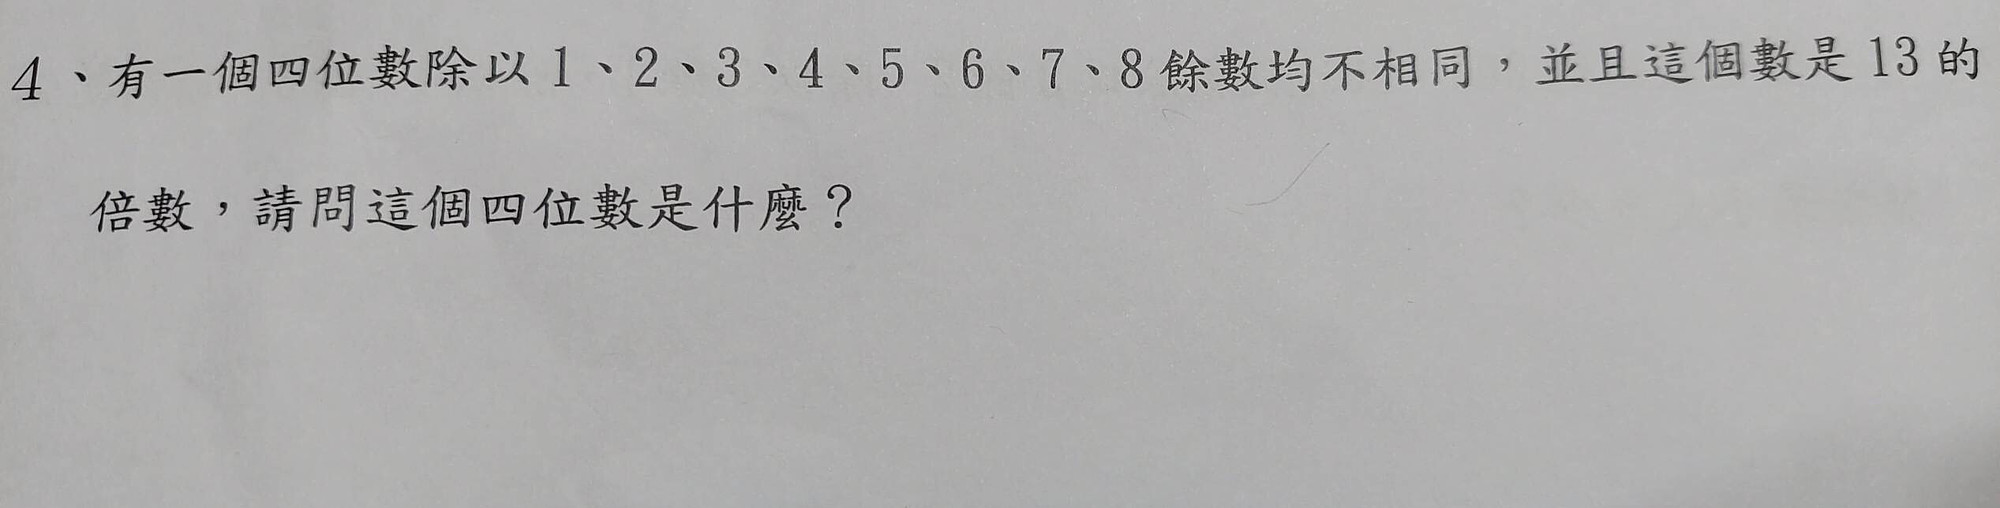 4、有一個四位數除以1、2、3、4、5、6、7、8餘數均不相同，並且這個數是13的
倍數，請問這個四位數是什麼？